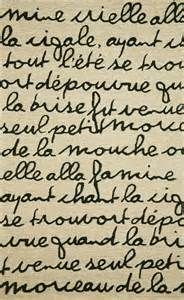 mine crielle alle
la cigale, ayant c
tout l'été se trou
ort dépourvue qu
la brise fut venue
seul petit morce
de la mouche ou
elle alla famine
ayant chant la cig
se trouvort dépo
vue quand la bri
t venue seul peti
morceau de la m